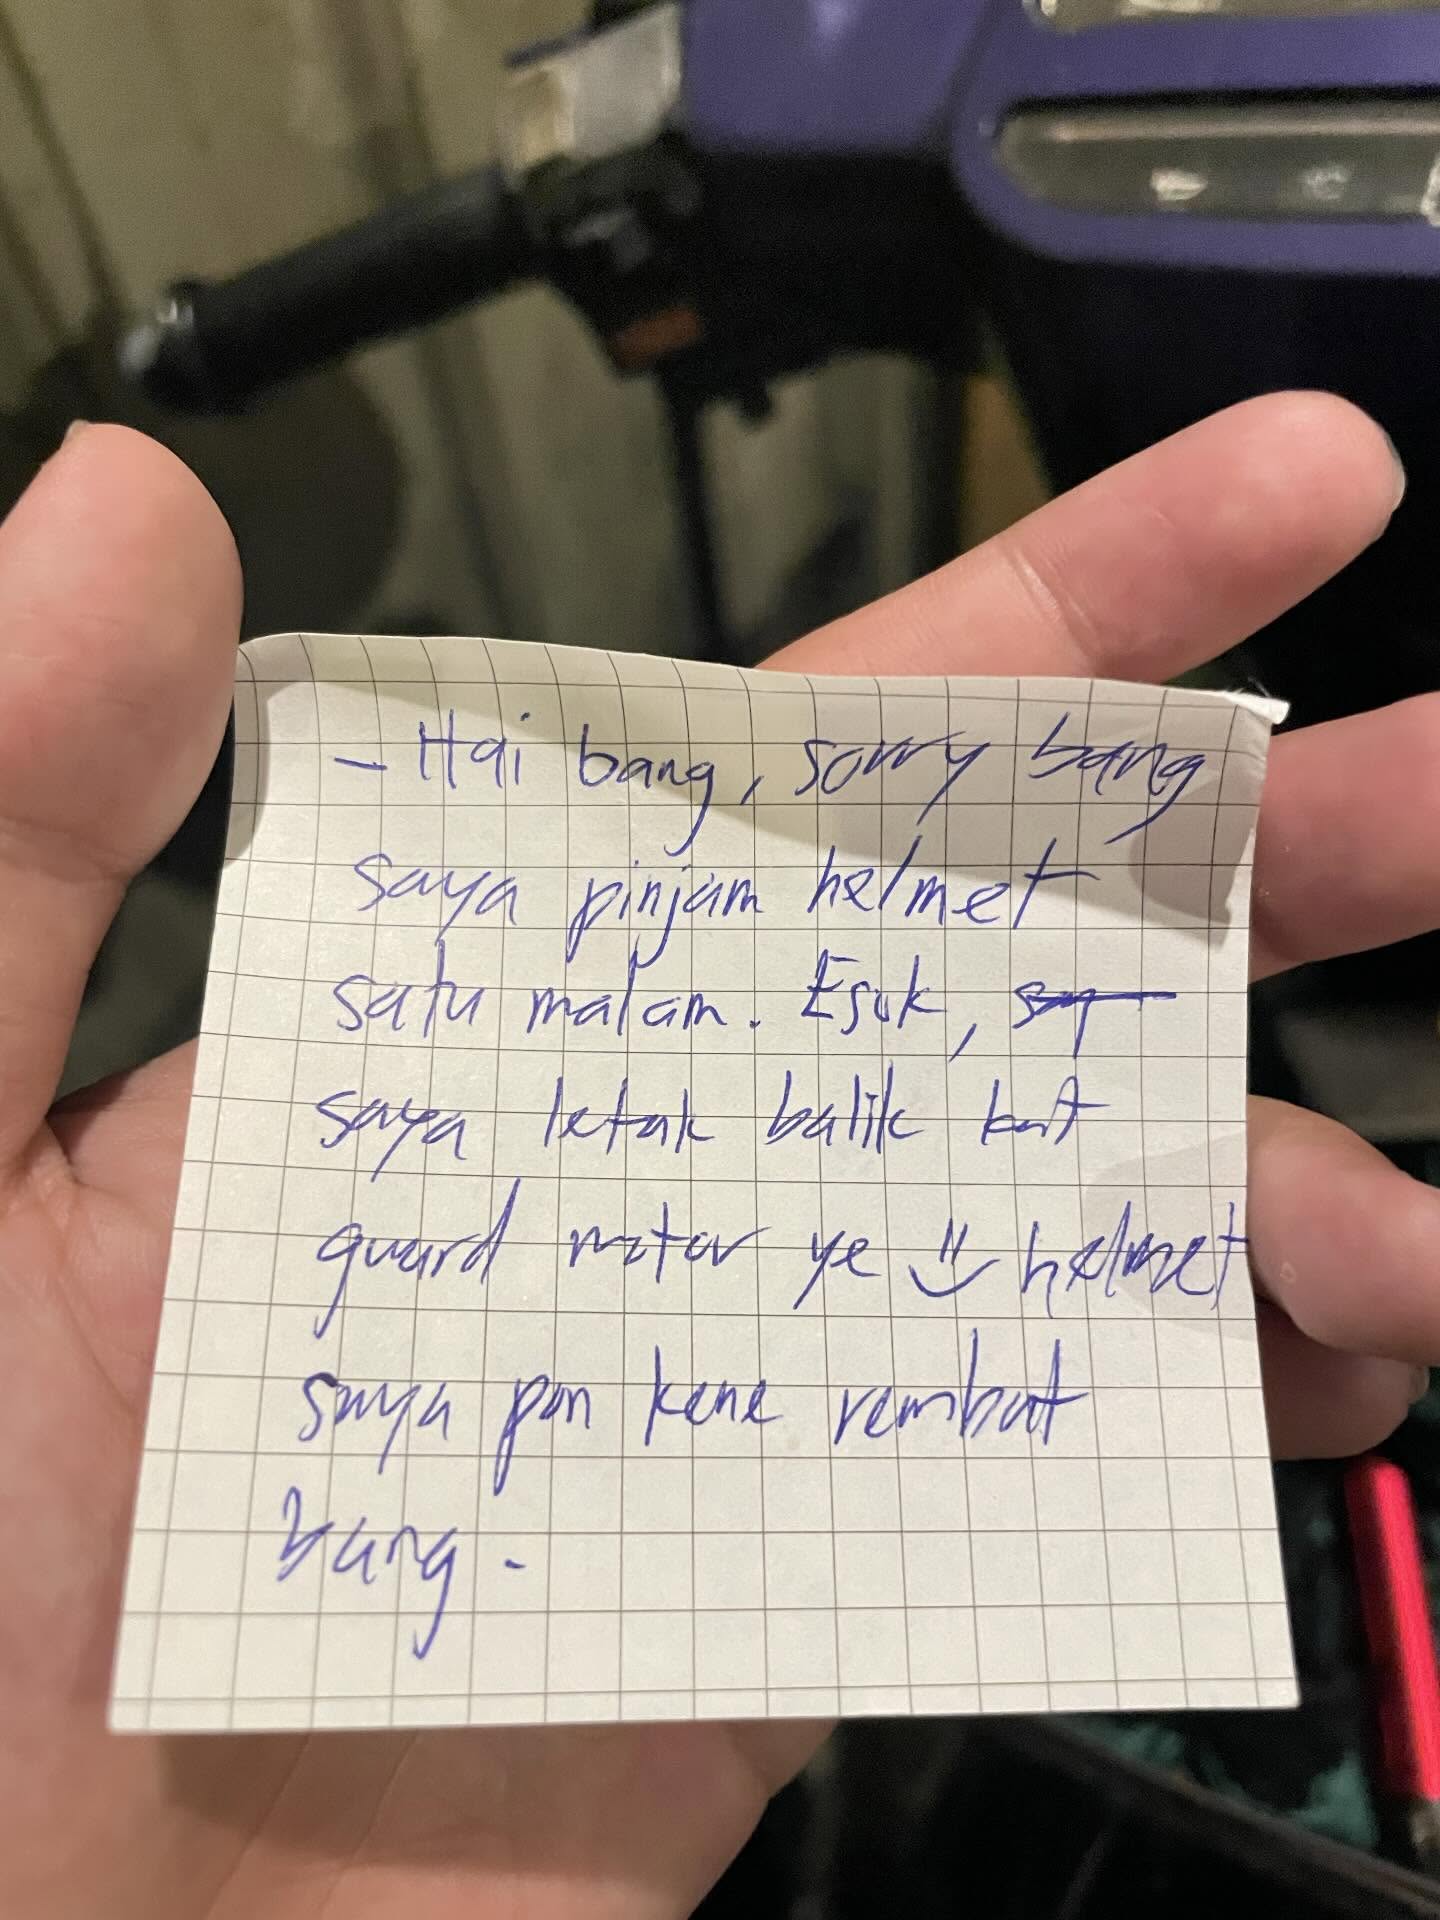 - Hai bang, sorry bang
saya pinjam helmet
satu malam. Esok, say
saya letak balik kat
guard motor ye
helmet
saya pon kene rembat
bang.